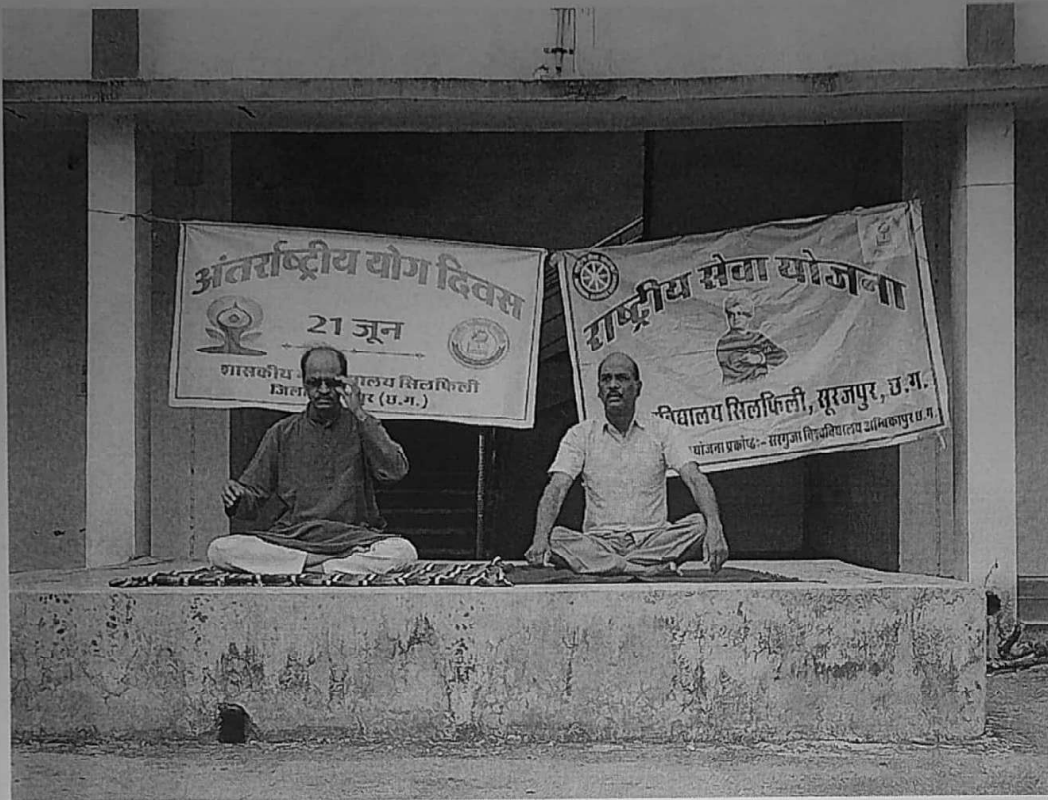 अंतर्राष्ट्रीय योग दिवस
21 जून
शासकीय लय सिलफिली
जिला पुर (छ.ग.)
राष्ट्रीय सेवा योजना
विद्यालय सिलफिली, सूरजपुर, छ.ग.
योजना प्रकोष्ठ:- सरगुजा विश्वविद्यालय अम्बिकापुर छ.ग.